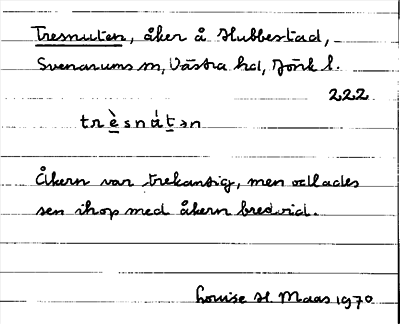 Tresnuten, åker å Hubbestad,
Svenarums sn, Västra hd, Jönk l.
222
trèsnát̲ən
Åkern var trekantig, men odlades
sen ihop med åkern bredvid.
Louise H. Maas 1970